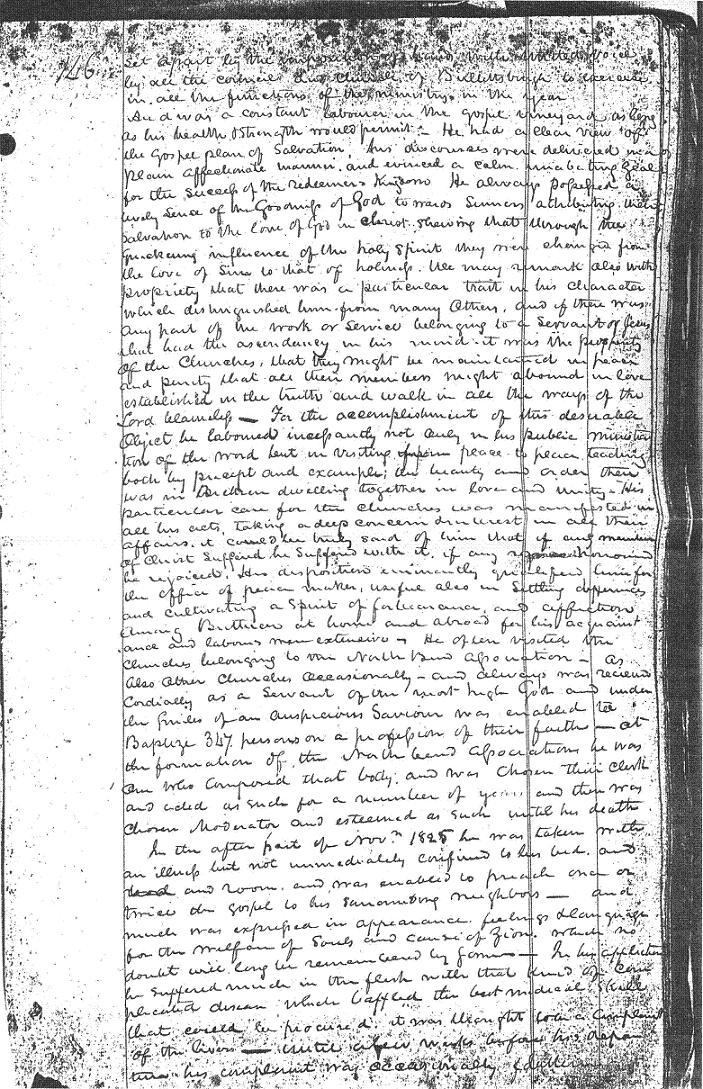 146
Set apart by the imposition of hands, with united voice
by all the council and church of Bullittsburgh to exercise
in all the functions of the ministry in the year
And was a constant labourer in the gospel vineyard as long
as his health & strength would permit — He had a clear view of
the Gospel plan of Salvation, his discourses were delivered in a
plain affectionate manner and evinced a calm unabating zeal
for the success of the redeemers Kingdom He always possessed a
lively Sence of the Goodness of God towards Sinners atributing their
Salvation to the love of God in Christ shewing that through the
quickening influence of the holy Spirit they were changed from
the love of Sin to that of holiness. We may remark also with
propriety that there was a particular trait in his Character
which distinguished him from many Others, and if there was
any part of the work or Service belonging to a Servant of Jesus
that had the ascendancy in his mind it was the prosperity
of the Churches, that they might be maintained in peace
and purity that all their members might abound in love
established in the truth and walk in all the ways of the
Lord blameless — For the accomplishment of this desirable
Object he laboured incessantly not only in his public ministra
tion of the word but in visiting from place to place teaching
both by precept and example; the beauty and order there
was in Brethren dwelling together in love and unity — His
particular care for the Churches was manifested in
all his acts, taking a deep concern & interest in all their
affairs, it could be truly said of him that if any member
of Christ Suffered he Suffered with it, if any honoured
he rejoiced, His disposition eminently qualified him for
the office of peace maker, useful also in Settling differences
and cultivating a Spirit of forbearance, and affection
among Brethren at home and abroad for his acquaint
ance and labours were extensive — He often visited the
Churches belonging to the North Bend Association — as
also Other Churches occasionally — and always was recieved
Cordially as a Servant of the most high God and under
the Smiles of an auspicious Saviour was enabled to
Baptize 347 persons on a profession of their faith — at
the formation of the North bend Association he was
one who composed that body, and was Chosen their Clerk
and acted as such for a number of years and then was
Chosen Moderator and esteemed as such until his death
In the after part of Novr. 1825 he was taken with
an illness but not immediately confined to his bed, and
and room. and was enabled to preach once or
twice the gospel to his Surrounding neighbors — and
much was expressed in appearance, feelings & language
for the welfare of Souls and cause of Zion, which no
doubt will long be remembered by some — In his affliction
he suffered much in the flesh with that kind of com
plicated disease which baffled the best medical Skill
that could be procured, it was thought to be a complaint
of the livers — until a few weeks before his depar
ture his complaint was occasionally